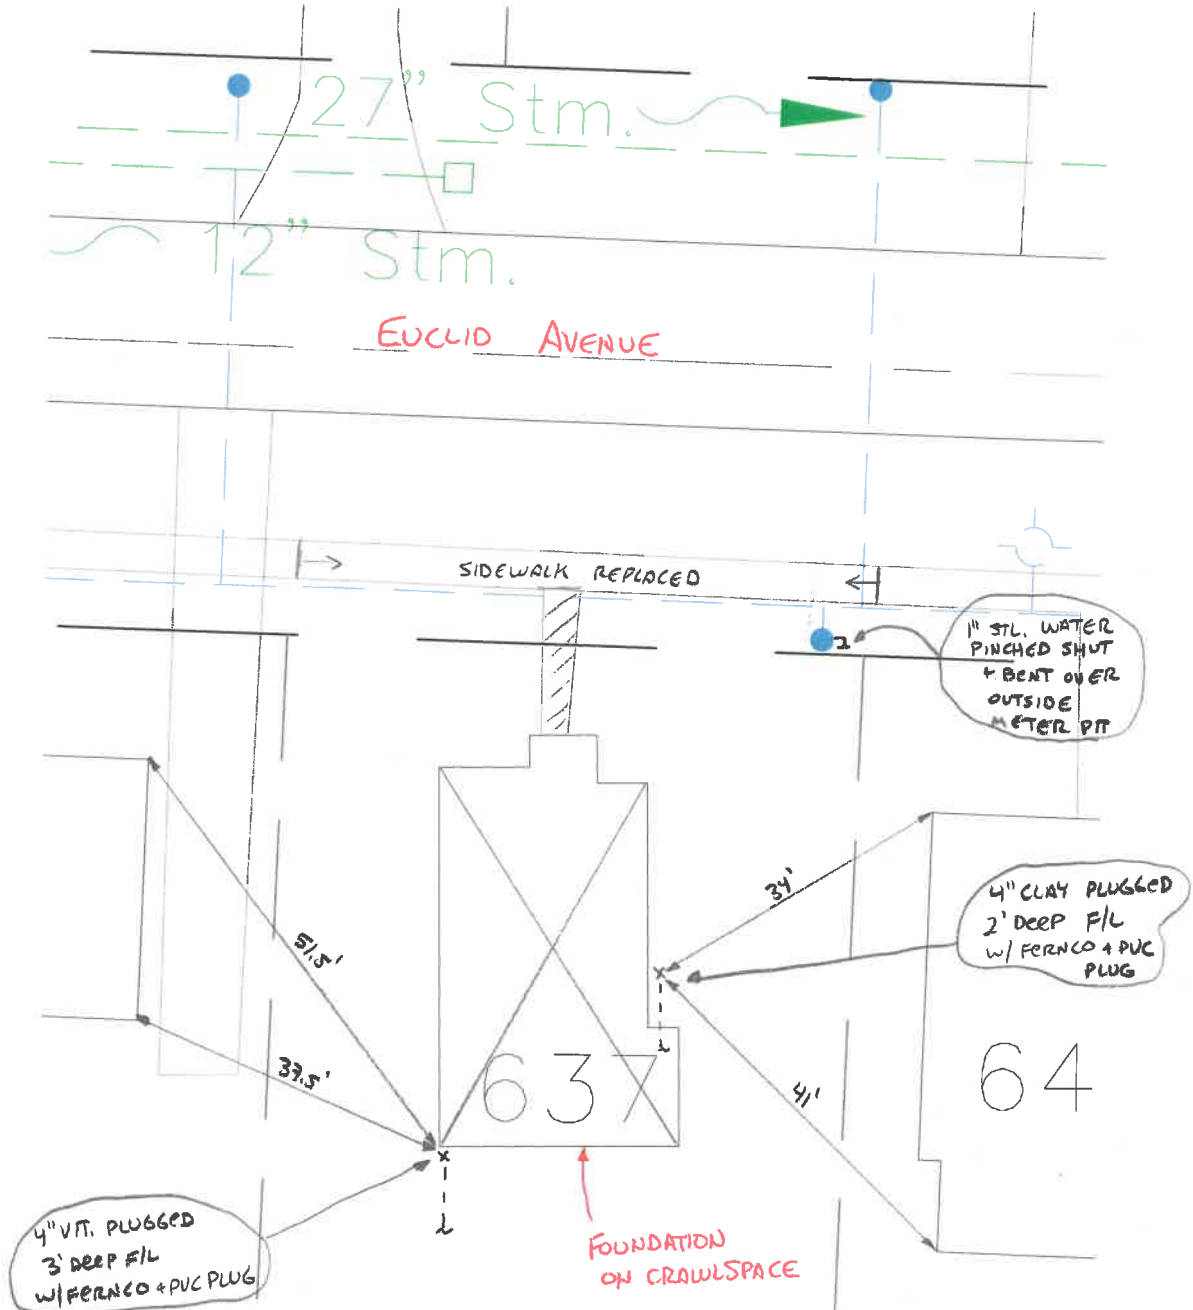 27” Stm.
12” Stm.
EUCLID AVENUE
SIDEWALK REPLACED
1" STL. WATER
PINCHED SHUT
+ BENT OVER
OUTSIDE
METER PIT
34'
4" CLAY PLUGGED
2' DEEP F/L
W/ FERNCO + PVC
PLUG
51.5'
37.5'
637
41'
64
4" VIT. PLUGGED
3' DEEP F/L
W/ FERNCO + PVC PLUG
FOUNDATION
ON CRAWLSPACE